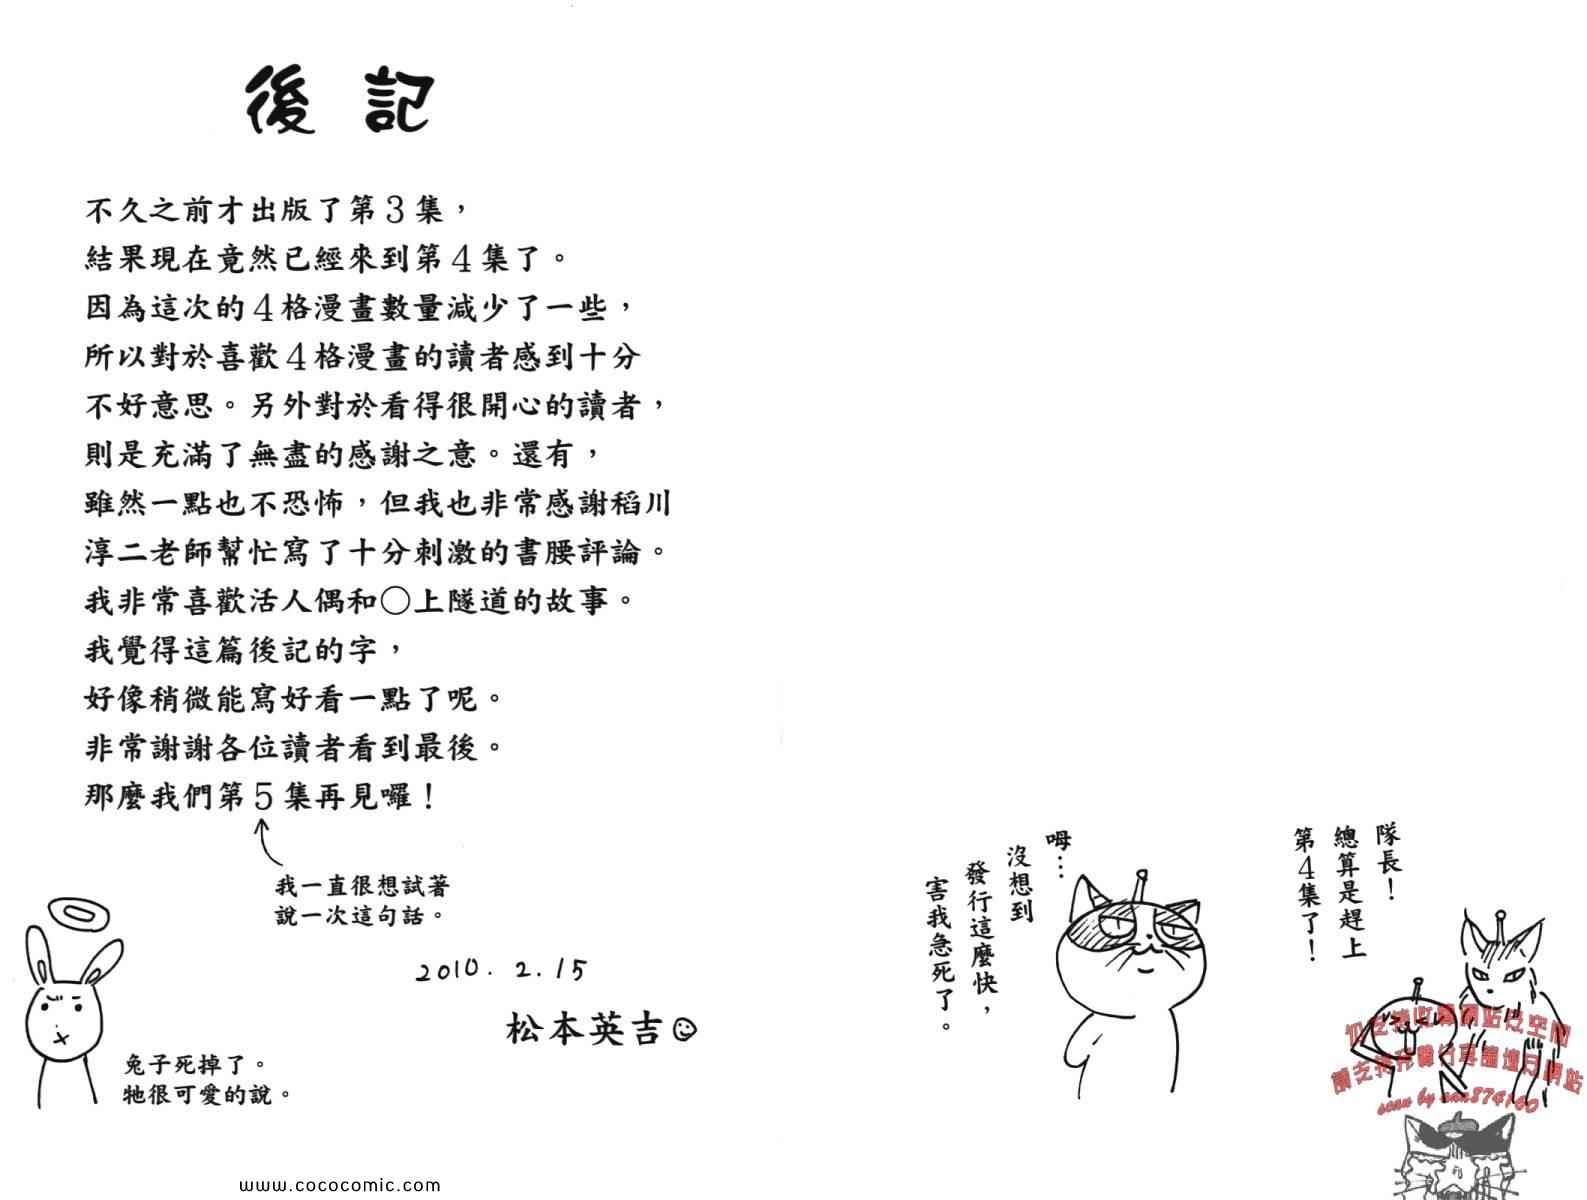 後記
不久之前才出版了第3集，
結果現在竟然已經來到第4集了。
因為這次的4格漫畫數量減少了一些，
所以對於喜歡4格漫畫的讀者感到十分
不好意思。另外對於看得很開心的讀者，
則是充滿了無盡的感謝之意。還有，
雖然一點也不恐怖，但我也非常感謝稻川
淳二老師幫忙寫了十分刺激的書腰評論。
我非常喜歡活人偶和○上隧道的故事。
我覺得這篇後記的字，
好像稍微能寫好看一點了呢。
非常謝謝各位讀者看到最後。
那麼我們第5集再見囉！
我一直很想試著
說一次這句話。
2010. 2. 15
松本英吉
兔子死掉了。
牠很可愛的說。
隊長！
總算是趕上
第4集了！
呣…
沒想到
發行這麼快，
害我急死了。
scan by
www.cococomic.com